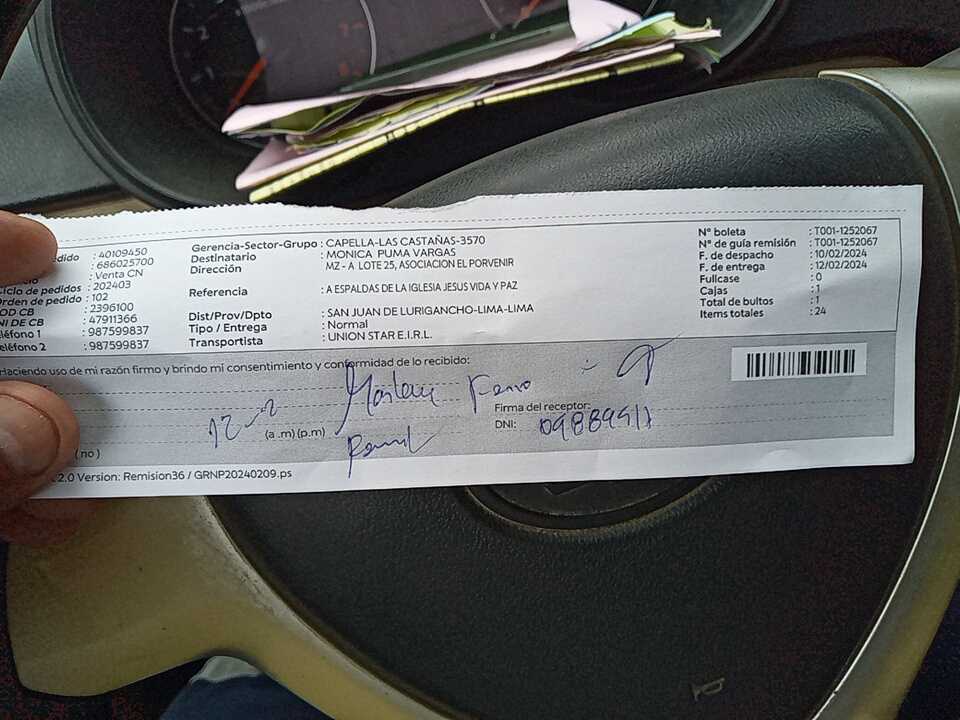 edido : 40109450
: 686025700
: Venta CN
Ciclo de pedidos : 202403
Orden de pedido : 102
OD CB : 2396100
NI DE CB : 47911366
eléfono 1 : 987599837
eléfono 2 : 987599837
Gerencia-Sector-Grupo : CAPELLA-LAS CASTAÑAS-3570
Destinatario : MONICA PUMA VARGAS
Dirección MZ - A LOTE 25, ASOCIACION EL PORVENIR
Referencia : A ESPALDAS DE LA IGLESIA JESUS VIDA Y PAZ
Dist/Prov/Dpto : SAN JUAN DE LURIGANCHO-LIMA-LIMA
Tipo / Entrega : Normal
Transportista : UNION STAR E.I.R.L.
N° boleta : T001-1252067
N° de guía remisión : T001-1252067
F. de despacho : 10/02/2024
F. de entrega : 12/02/2024
Fullcase : 0
Cajas : 1
Total de bultos : 1
Items totales : 24
Haciendo uso de mi razón firmo y brindo mi consentimiento y conformidad de lo recibido:
12-2
(a .m) (p.m)
Firma del receptor:
DNI: 09889911
( no )
2.0 Version: Remision36 / GRNP20240209.ps